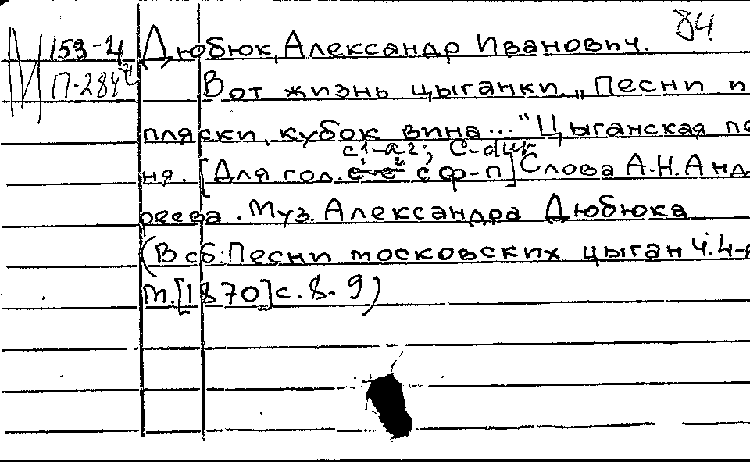 84
М 159-4 Дюбюк, Александр Иванович.
П-284 Вот жизнь цыганки „Песни и
пляски, кубок вина..." Цыганская пе
c1-a2; C-dur
ня. [Для гол. с ф-п] Слова А.Н. Анд
реева. Муз. Александра Дюбюка
(В сб: Песни московских цыган Ч.4-я
М. [1870] с. 8-9)